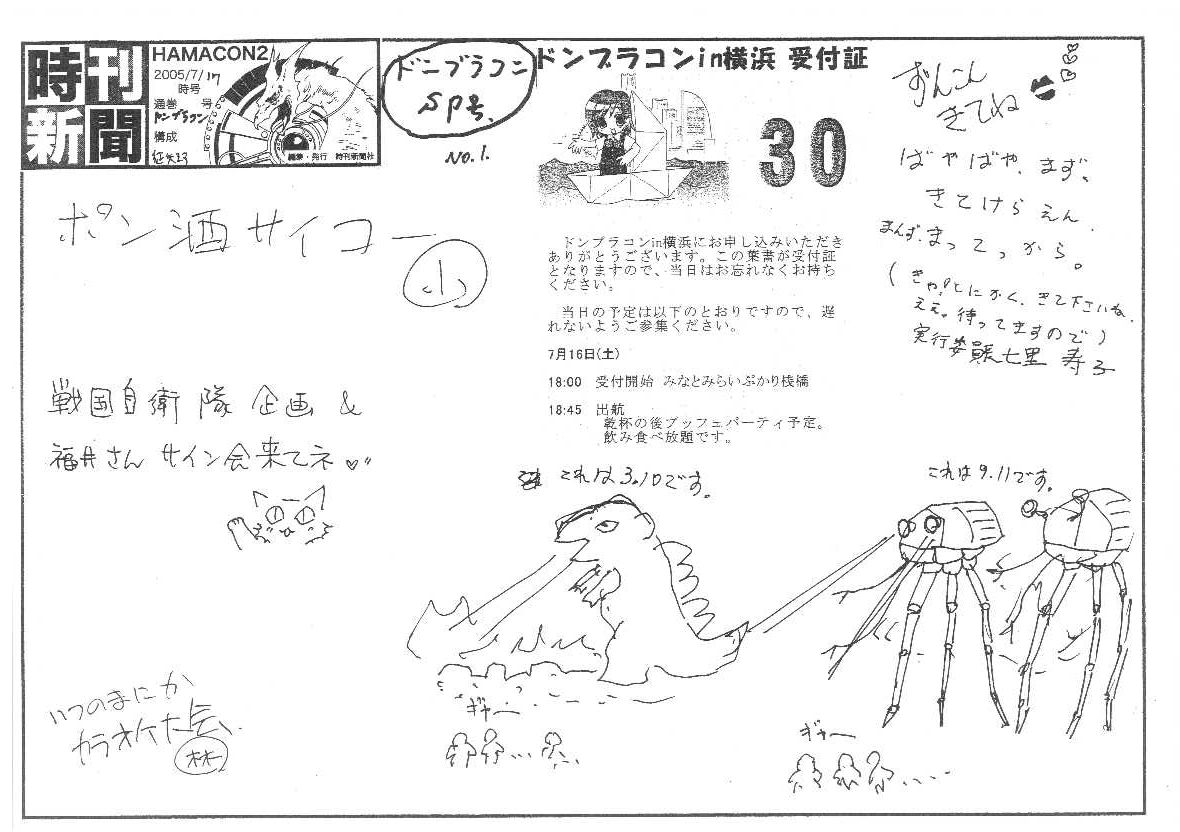 時刊
新聞
HAMACON2
2005/7/17
時号
通巻 号
ドンブラコン
構成
編集・発行 時刊新聞社
ドンブラコン
SP号.
No.1.
ドンブラコンin横浜 受付証
30
ドンブラコンin横浜にお申し込みいただき
ありがとうございます。この葉書が受付証
となりますので、当日はお忘れなくお持ち
ください。
当日の予定は以下のとおりですので、遅
れないようご参集ください。
7月16日(土)
18:00 受付開始 みなとみらいぷかり桟橋
18:45 出航
乾杯の後ブッフェパーティ予定。
飲み食べ放題です。
ずんこん
きてね
ばやばや、まず、
きてけらえん
まんず、まってっから。
(きゃ!とにかく、きて下さいね、
ええ。待ってますので)
実行委員長七里 寿子
ポン酒サイコー
小
戦国自衛隊 企画 &
福井さん サイン会来てネ
これは3.10です。
これは9.11です。
ギャー
ギャー
いつのまにか
カラオケ大会、
林